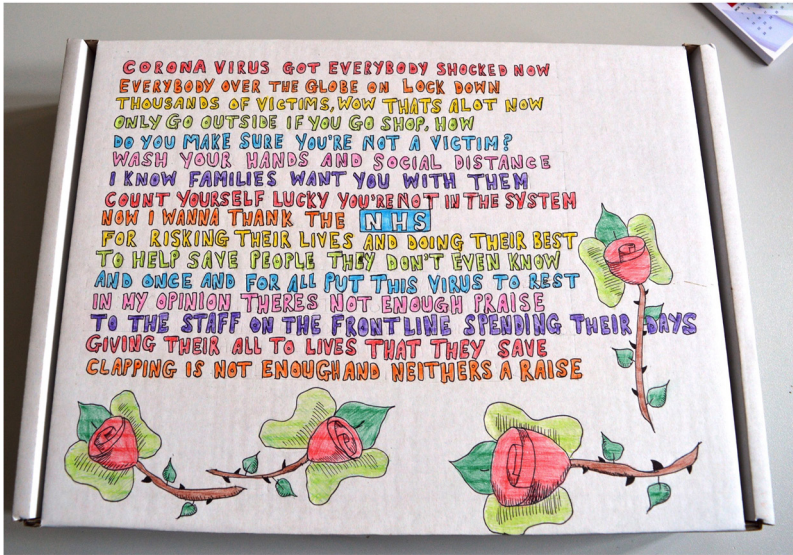 CORONA VIRUS GOT EVERYBODY SHOCKED NOW
EVERYBODY OVER THE GLOBE ON LOCK DOWN
THOUSANDS OF VICTIMS, WOW THATS ALOT NOW
ONLY GO OUTSIDE IF YOU GO SHOP, HOW
DO YOU MAKE SURE YOU'RE NOT A VICTIM?
WASH YOUR HANDS AND SOCIAL DISTANCE
I KNOW FAMILIES WANT YOU WITH THEM
COUNT YOURSELF LUCKY YOU'RE NOT IN THE SYSTEM
NOW I WANNA THANK THE NHS
FOR RISKING THEIR LIVES AND DOING THEIR BEST
TO HELP SAVE PEOPLE THEY DON'T EVEN KNOW
AND ONCE AND FOR ALL PUT THIS VIRUS TO REST
IN MY OPINION THERES NOT ENOUGH PRAISE
TO THE STAFF ON THE FRONTLINE SPENDING THEIR DAYS
GIVING THEIR ALL TO LIVES THAT THEY SAVE
CLAPPING IS NOT ENOUGH AND NEITHERS A RAISE